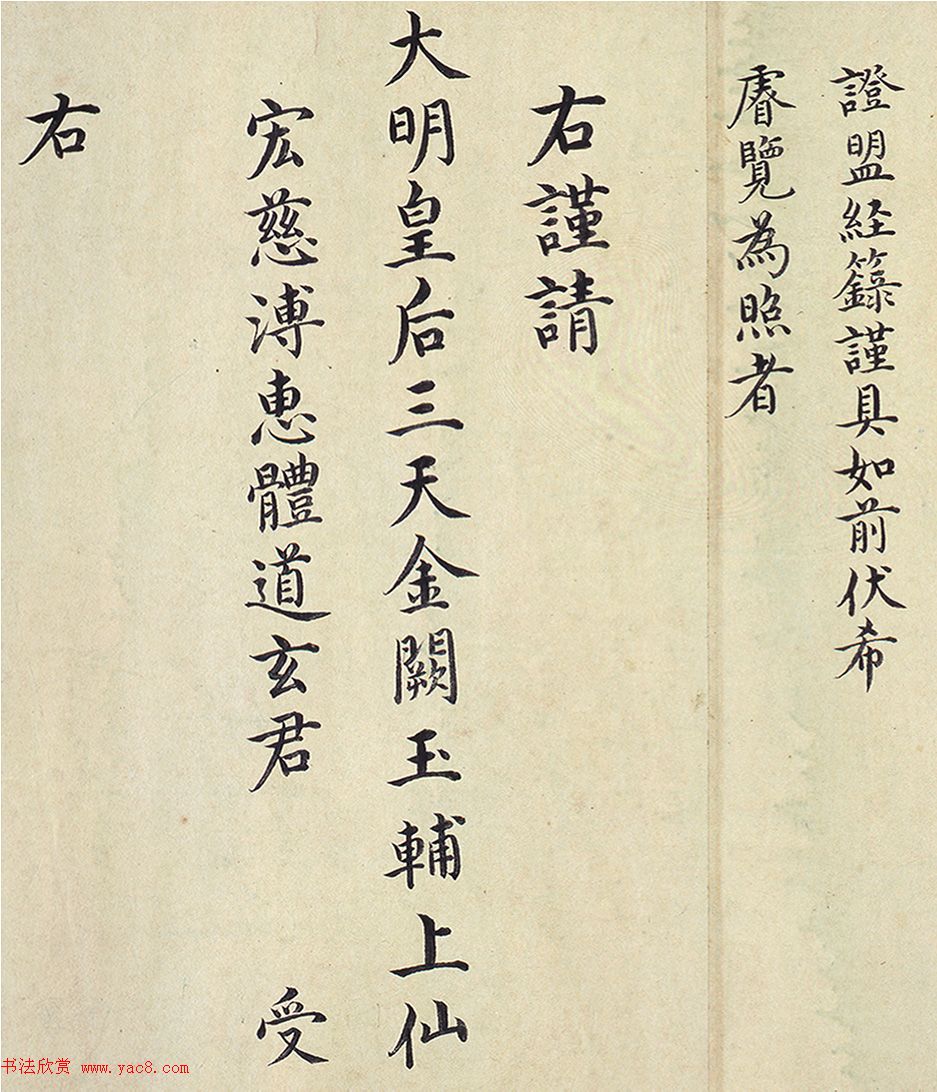 證盟経籙謹具如前伏希
睿覽為照者
右謹請
大明皇后三天金闕玉輔上仙
宏慈溥惠體道玄君 受
右
书法欣赏 www.yac8.com